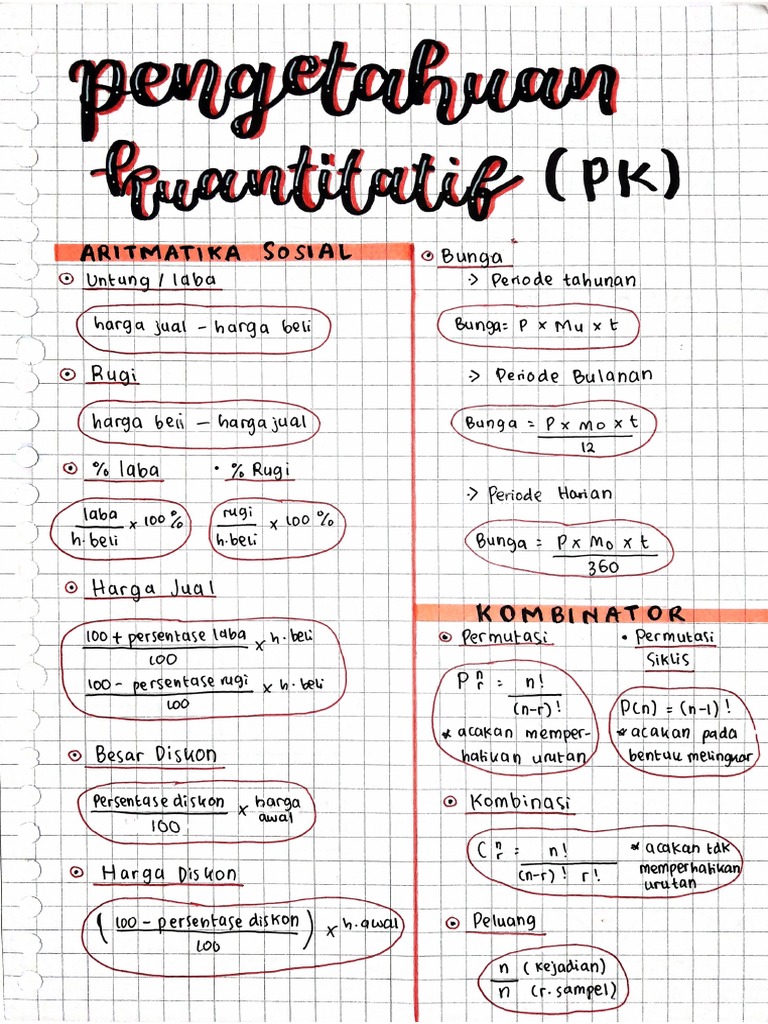 pengetahuan
kuantitatif (PK)
ARITMATIKA SOSIAL
Untung / laba
harga jual – harga beli
Rugi
harga beli – harga jual
% laba • % Rugi
laba / h. beli × 100 % rugi / h. beli × 100 %
Harga Jual
100 + persentase laba / 100 × h. beli
100 - persentase rugi / 100 × h. beli
Besar Diskon
Persentase diskon / 100 × harga awal
Harga Diskon
( 100 - persentase diskon / 100 ) × h. awal
Bunga
-> Periode tahunan
Bunga = P × Mu × t
-> Periode Bulanan
Bunga = P × Mo × t / 12
-> Periode Harian
Bunga = P × Mo × t / 360
KOMBINATOR
Permutasi
P n r = n! / (n-r)!
* acakan memper-
hatikan urutan
• Permutasi
Siklis
P(n) = (n-1)!
* acakan pada
bentuk melingkar
Kombinasi
C n r = n! / (n-r)! r!
* acakan tdk
memperhatikan
urutan
Peluang
n (kejadian)
n (r. sampel)